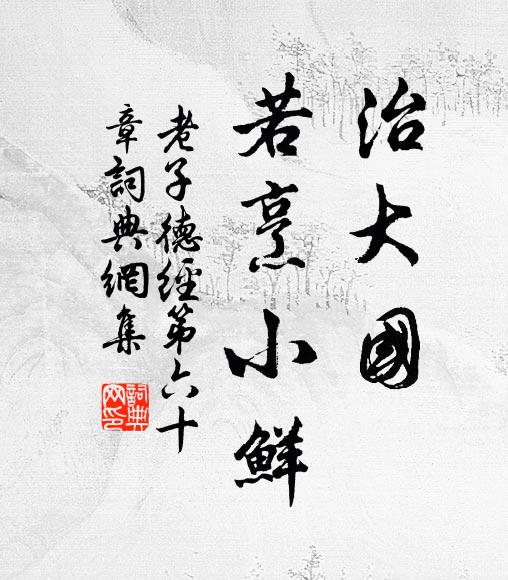 治大國
若烹小鮮
老子德經第六十
章詞典網集
詞典
网印